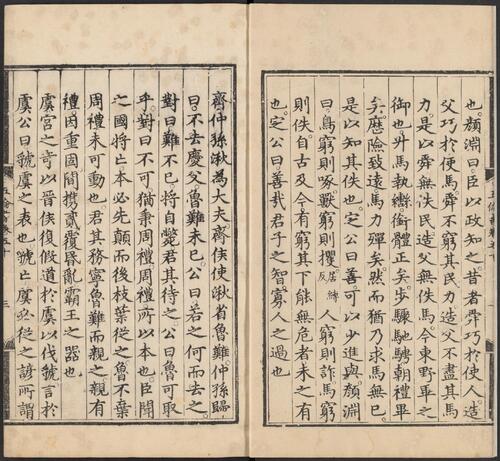 也。顏淵曰臣以政知之昔者舜巧於使人造
父巧於使馬舜不窮其民力造父不盡其馬
力是以舜無泆民造父無佚馬今東野畢之
御也升馬執轡銜體正矣步驟馳騁朝禮畢
矣歷險致遠馬力殫矣然而猶乃求馬無已
是以知其佚也定公曰善可以少進與顏淵
曰鳥窮則啄獸窮則攫居縛反人窮則詐馬窮
則佚自古及今有窮其下能無危者未之有
也定公曰善哉君子之智寡人之過也
齊仲孫湫為大夫齊侯使湫省魯難仲孫歸
曰不去慶父魯難未已公曰若之何而去之
對曰難不已將自斃君其待之公曰魯可取
乎對曰不可猶秉周禮周禮所以本也臣聞
之國將亡本必先顛而後枝葉從之魯不棄
周禮未可動也君其務寧魯難而親之親有
禮因重固間攜貳覆昏亂霸王之器也
虞宮之奇以晉侯復假道於虞以伐虢言於
虞公曰虢虞之表也虢亡虞必從之諺所謂
三